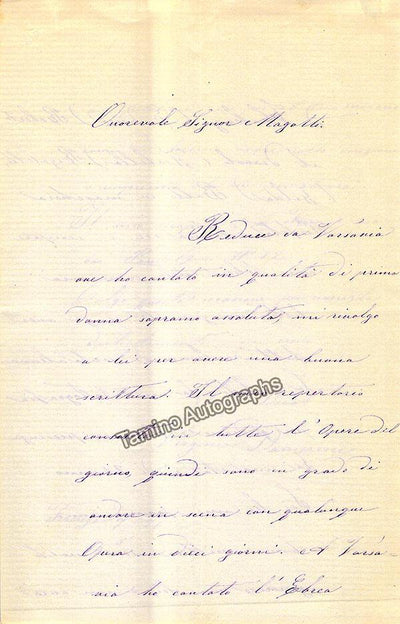 Onorevole Signor Magotti:
Reduce da Varsavia
ove ho cantato in qualità di prima
donna soprano assoluta, mi rivolgo
a lei per avere una buona
scrittura. Il mio repertorio
consiste in tutte l'Opere del
giorno, quindi sono in grado di
andare in scena con qualunque
Opera in dieci giorni. A Varsa-
via ho cantato l'Ebrea
Tamino Autographs